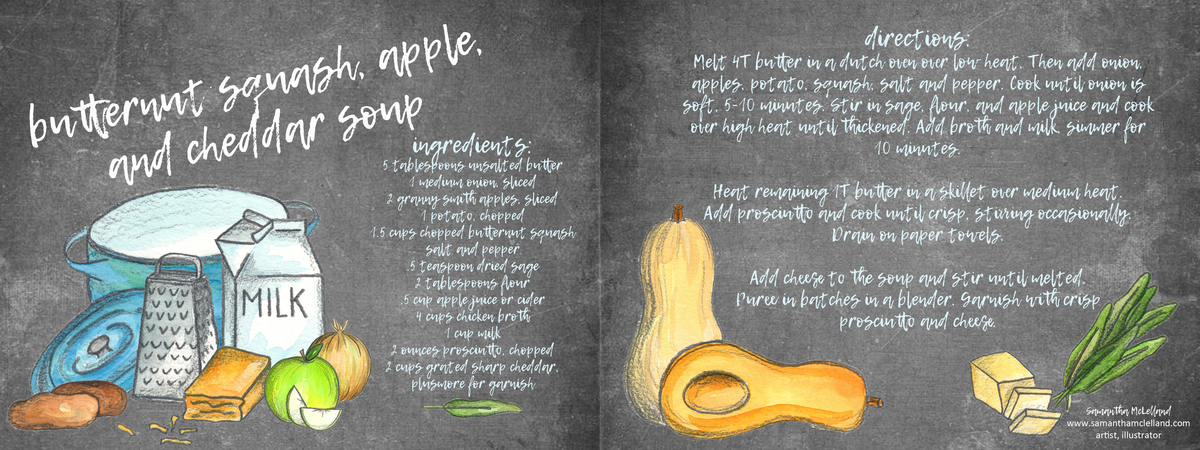 butternut squash, apple,
and cheddar soup
MILK
ingredients:
5 tablespoons unsalted butter
1 medium onion, sliced
2 granny smith apples, sliced
1 potato, chopped
1.5 cups chopped butternut squash
salt and pepper
.5 teaspoon dried sage
2 tablespoons flour
.5 cup apple juice or cider
4 cups chicken broth
1 cup milk
2 ounces prosciutto, chopped
2 cups grated sharp cheddar,
plusmore for garnish
directions:
Melt 4T butter in a dutch oven over low-heat. Then add onion,
apples, potato, squash, salt and pepper. Cook until onion is
soft, 5-10 minutes. Stir in sage, flour, and apple juice and cook
over high heat until thickened. Add broth and milk, simmer for
10 minutes.
Heat remaining 1T butter in a skillet over medium heat.
Add prosciutto and cook until crisp, stirring occasionally.
Drain on paper towels.
Add cheese to the soup and stir until melted.
Puree in batches in a blender. Garnish with crisp
prosciutto and cheese.
Samantha McLelland
www.samanthamclelland.com
artist, illustrator